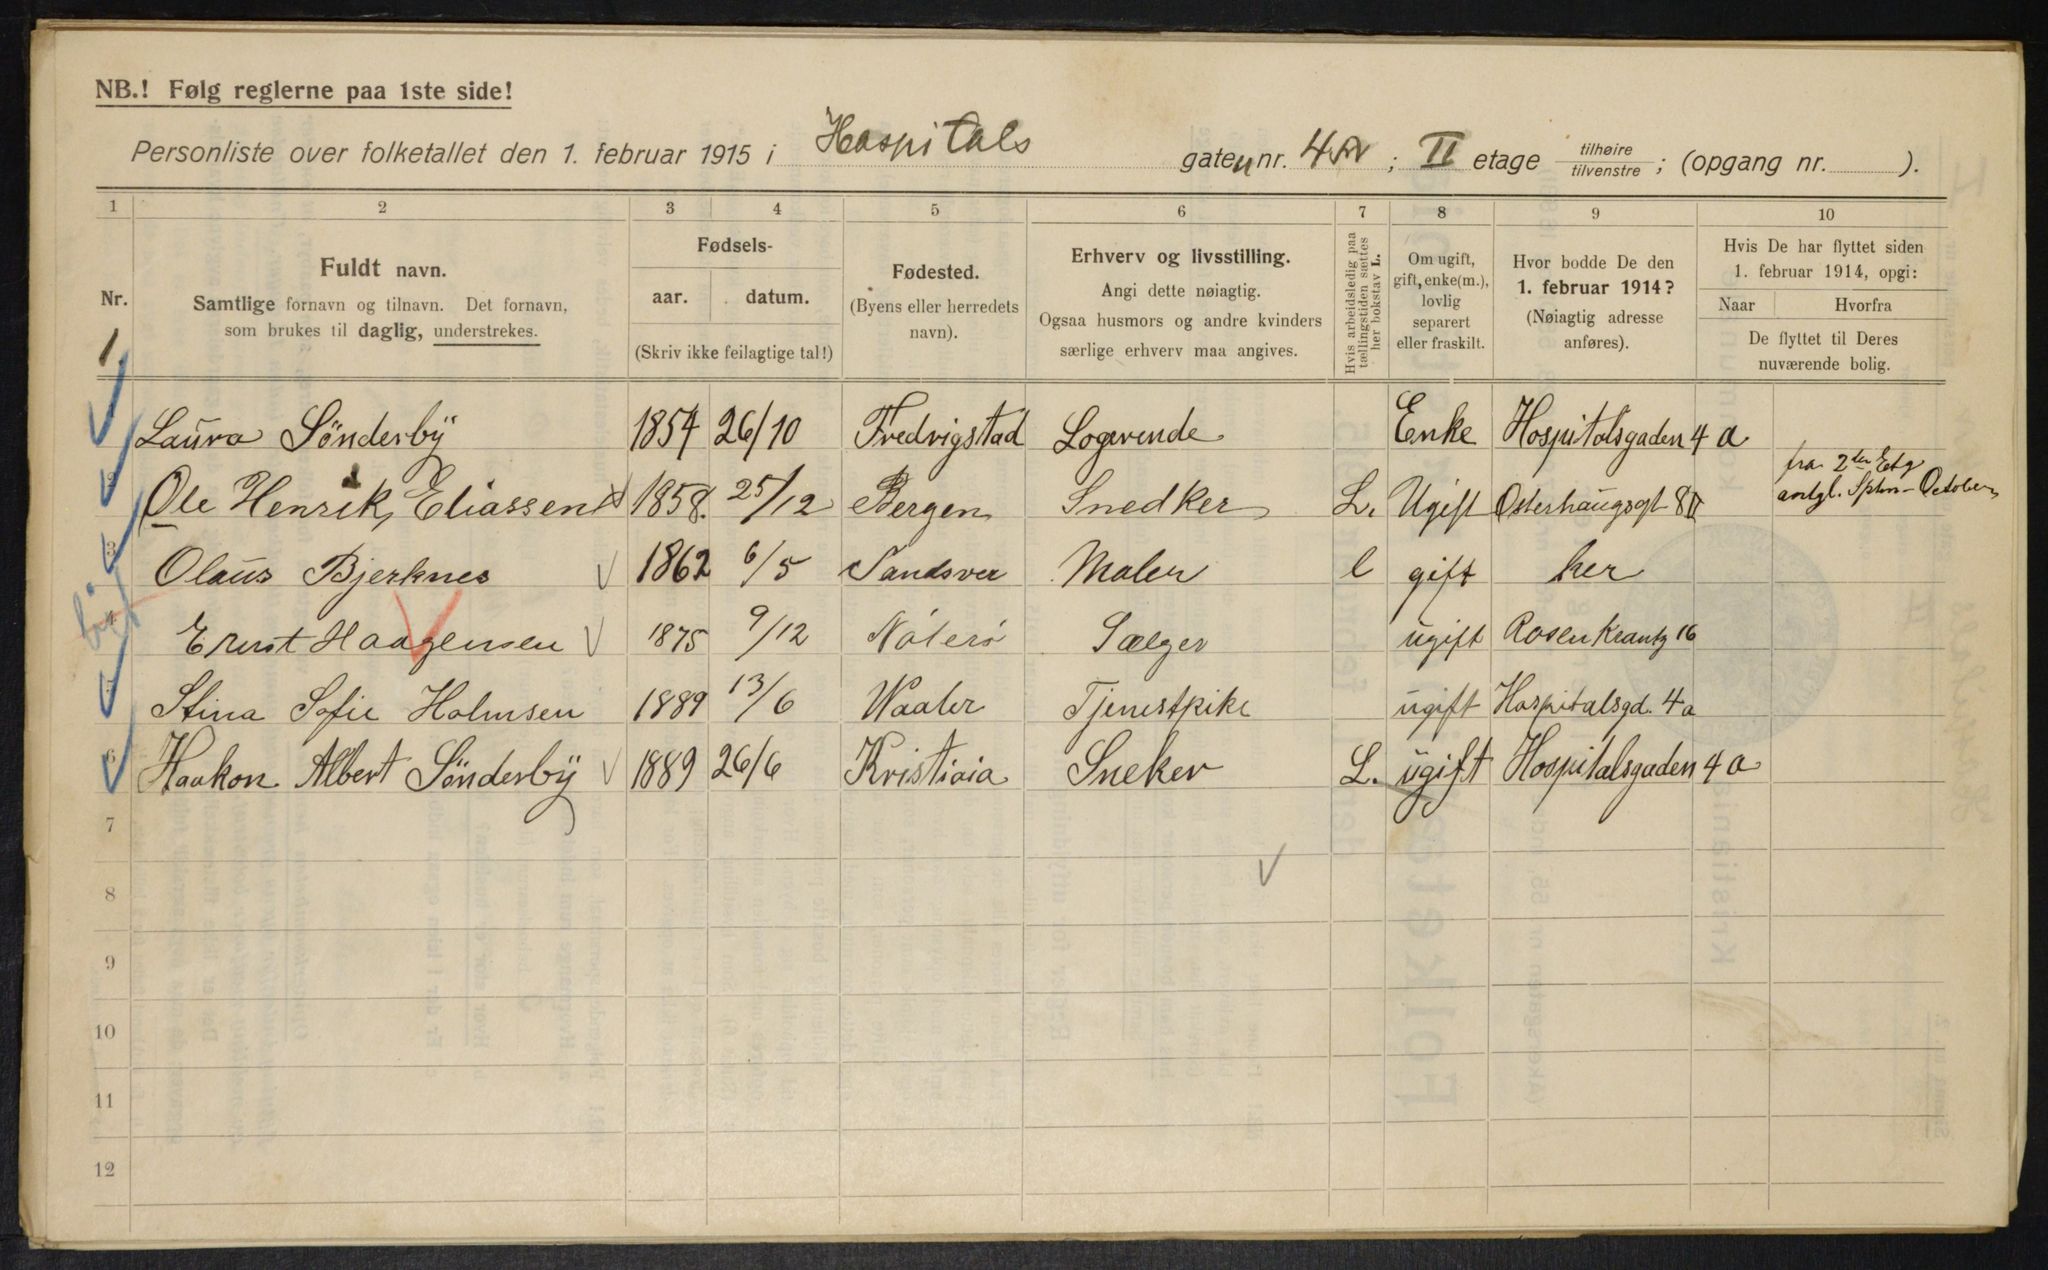 NB.! Følg reglerne paa 1ste side!
Personliste over folketallet den 1. februar 1915 i Hospitals gaten nr. 4a; II etage tilhøire / tilvenstre; (opgang nr. ).
1 2 3 4 5 6 7 8 9 10
Nr.
Fuldt navn.
Samtlige fornavn og tilnavn. Det fornavn,
som brukes til daglig, understrekes.
Fødsels-
aar. datum.
(Skriv ikke feilagtige tal!)
Fødested.
(Byens eller herredets
navn).
Erhverv og livsstilling.
Angi dette nøiagtig.
Ogsaa husmors og andre kvinders
særlige erhverv maa angives.
Hvis arbeidsledig paa
tællingstiden sættes
her bokstav L.
Om ugift,
gift, enke(m.),
lovlig
separert
eller fraskilt.
Hvor bodde De den
1. februar 1914?
(Nøiagtig adresse
anføres).
Hvis De har flyttet siden
1. februar 1914, opgi:
Naar Hvorfra
De flyttet til Deres
nuværende bolig.
1 Laura Sønderby 1854 26/10 Fredrigstad Logerende Enke Hospitalsgaden 4 a
2 Ole Henrik Eliassen 1858. 25/12 Bergen Snedker L. Ugift Osterhaugsgt 8 II fra 2den Etg
antgl. Sptm-October
3 Olaus Bjerknes 1862 6/5 Sandsver Maler l gift her
4 Ernst Haagensen 1875 9/12 Nøterø Sælger ugift Rosenkrantz 16
5 Stina Sofie Holmsen 1889 13/6 Waaler Tjenestpike ugift Hospitalsgd. 4 a
6 Haakon Albert Sønderby 1889 26/6 Kristiaia Sneker L. ugift Hospitalsgaden 4 a
7
8
9
10
11
12